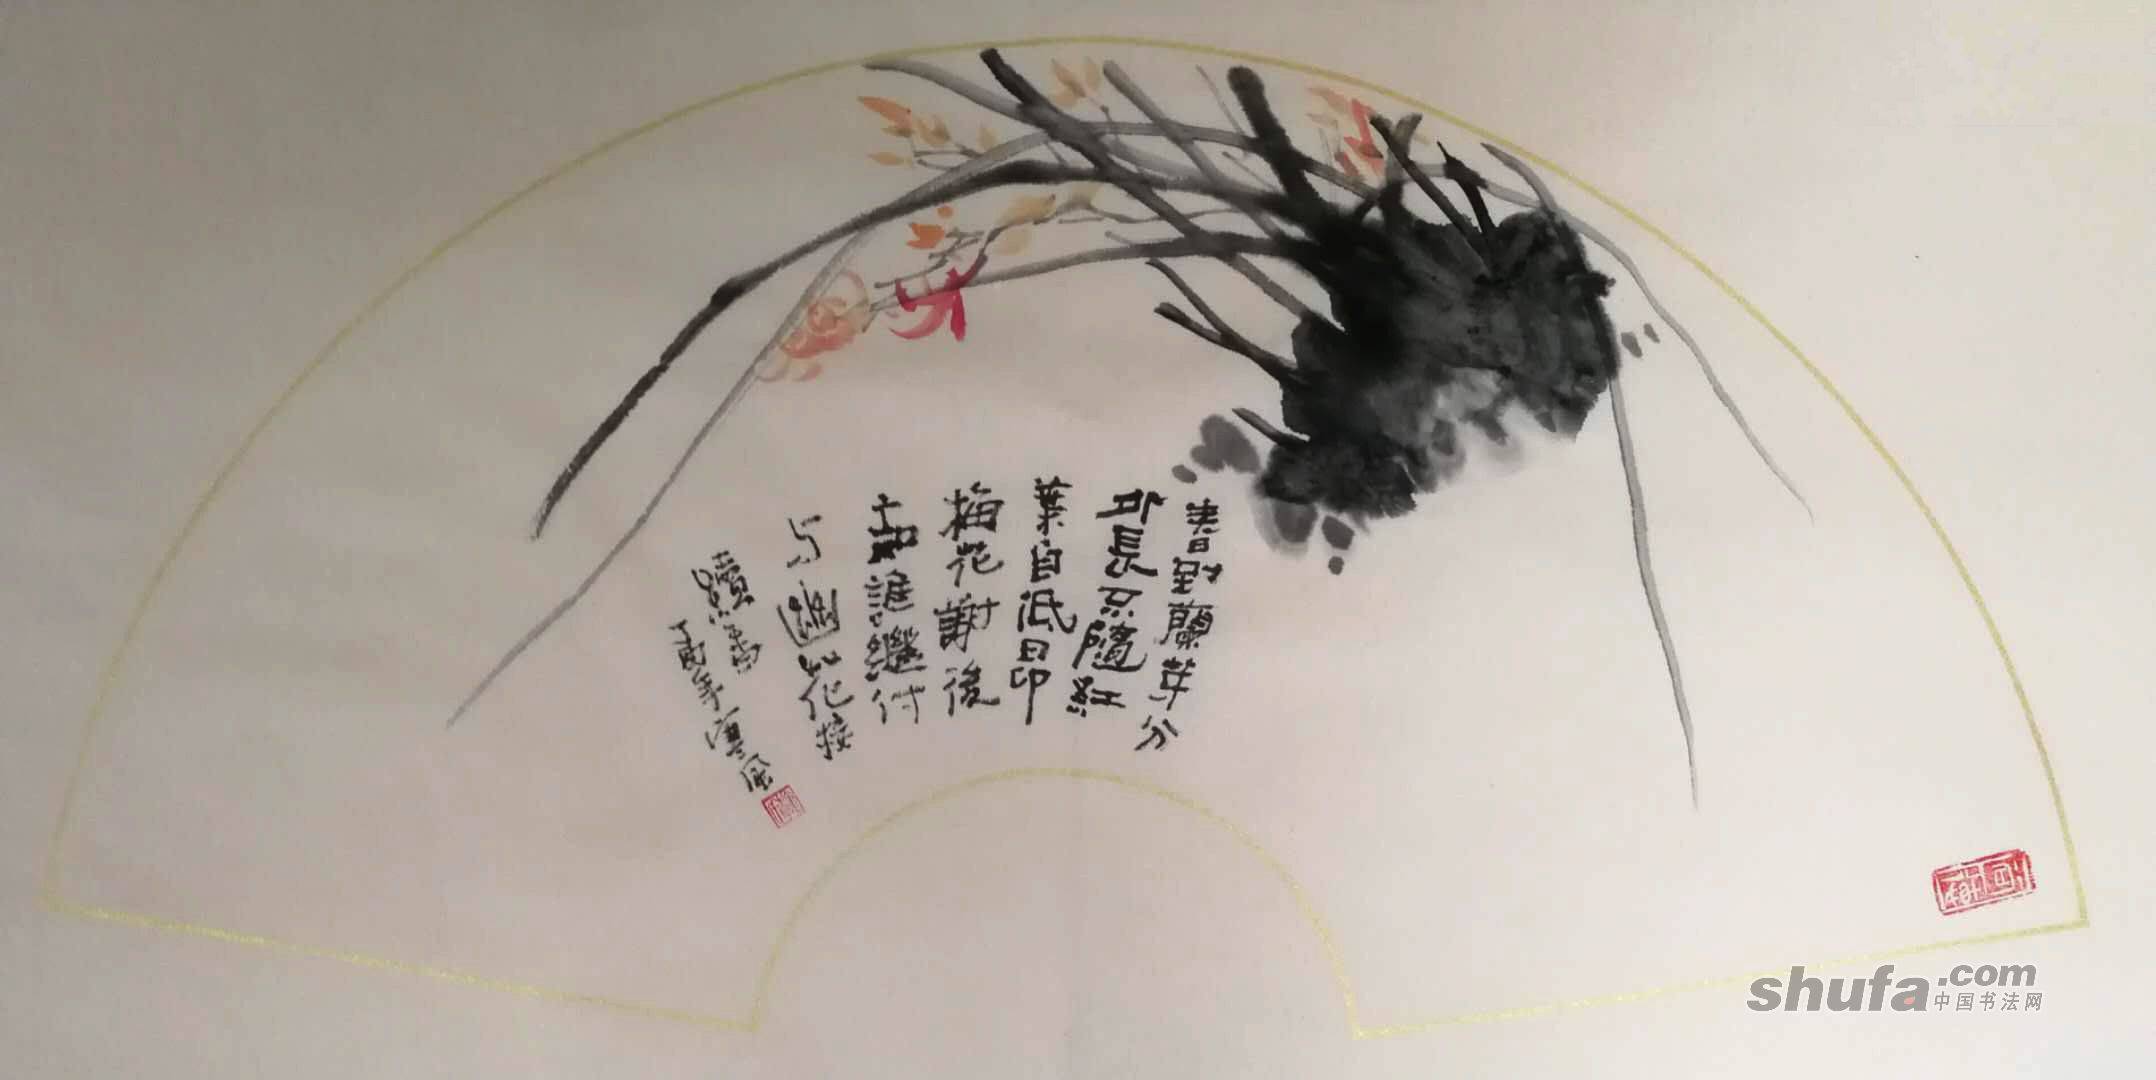 春到蘭芽分
外長不隨紅
葉自低昂
梅花謝後
知誰繼付
与幽花接
續香
丁酉年
shufa.com
中国书法网